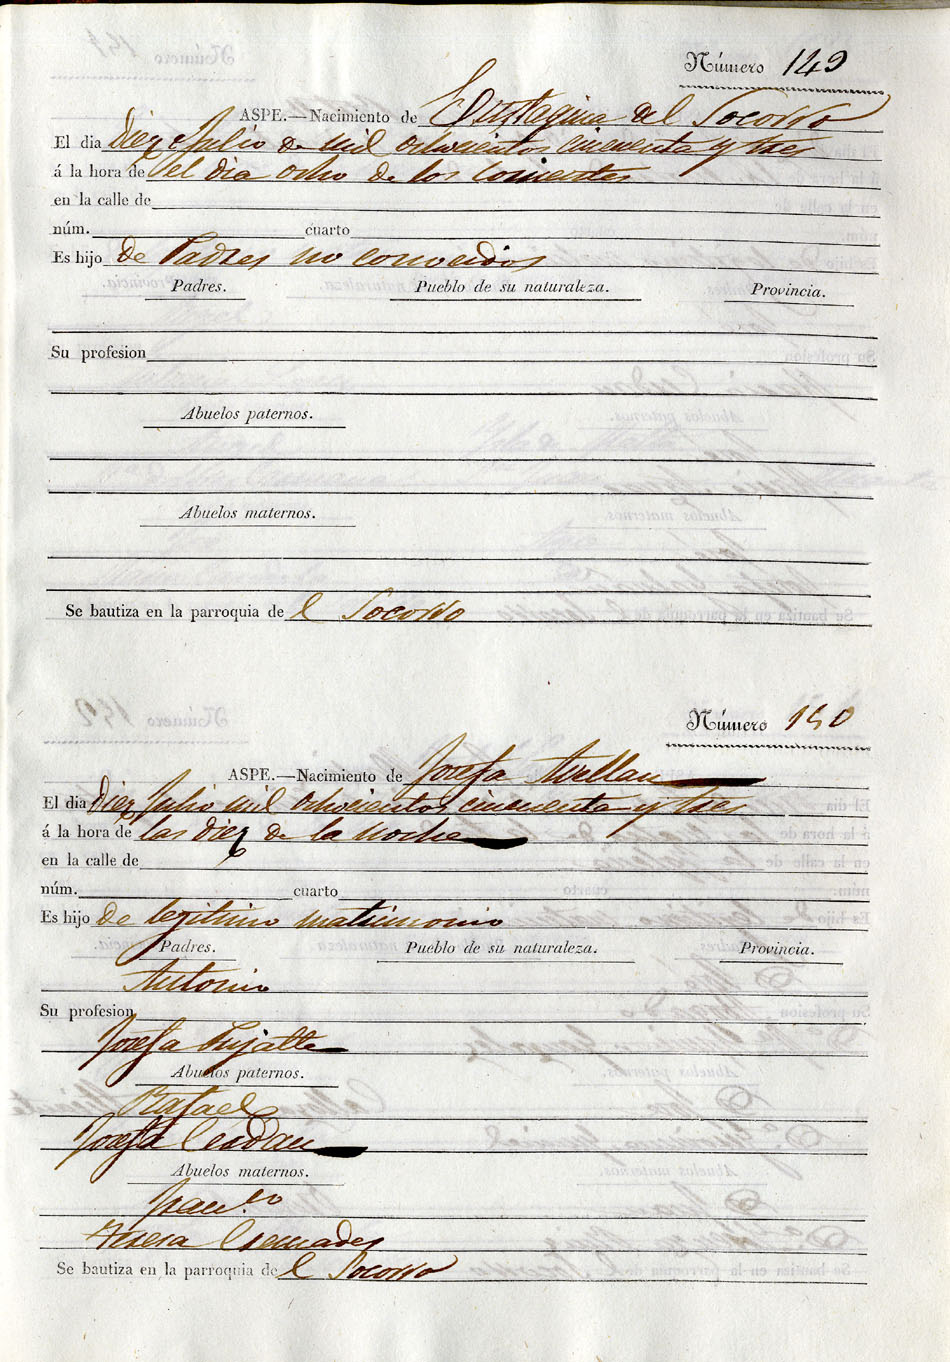 Número 149
ASPE.—Nacimiento de Eustaquia del Socorro
El dia diez Julio de mil ochocientos cincuenta y tres
á la hora de el dia ocho de los corrientes
en la calle de
núm. cuarto
Es hijo de Padres no conocidos
Padres. Pueblo de su naturaleza. Provincia.
Su profesion
Abuelos paternos.
Abuelos maternos.
Se bautiza en la parroquia de l Socorro
Número 150
ASPE.—Nacimiento de Josefa Avellan
El dia Diez Julio mil ochocientos cincuenta y tres
á la hora de las diez de la noche
en la calle de
núm. cuarto
Es hijo de legitimo matrimonio
Padres. Pueblo de su naturaleza. Provincia.
Antonio
Su profesion
Josefa Pujalte
Abuelos paternos.
Rafael
Josefa
Abuelos maternos.
Franco
Teresa Cremades
Se bautiza en la parroquia de l Socorro